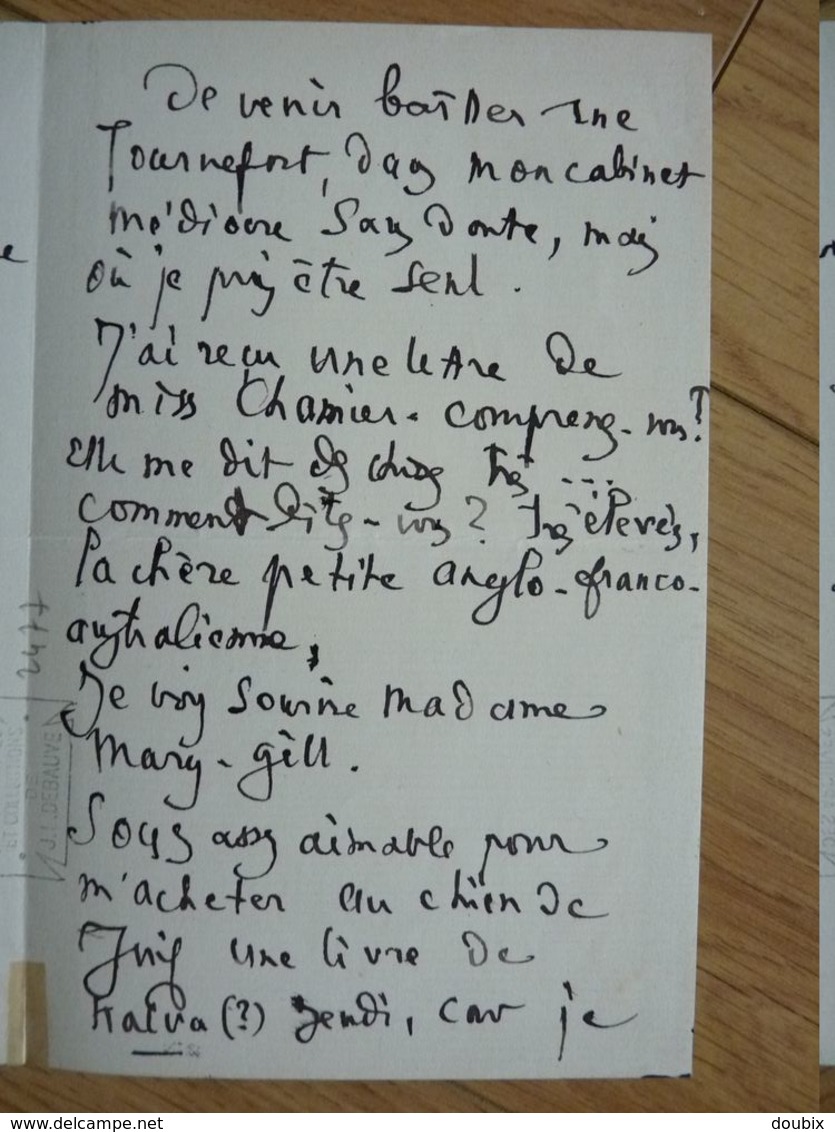 De venir bavarder rue
Tournefort, dans mon cabinet
médiocre sans doute, mais
où je puis être seul.
J'ai reçu une lettre de
miss Chamier. comprenez-vous?
Elle me dit des choses très ...
comment dites-vous? très élevées,
la chère petite anglo-franco-
australienne,
Je vois sourire madame
Mary-gill.
Soyez assez aimable pour
m'acheter au chien de
Juif une livre de
halva (?) jeudi, car je
2477
ET COLLECTIONS
DE
J.L. DEBAUVE
www.delcampe.net
doubix